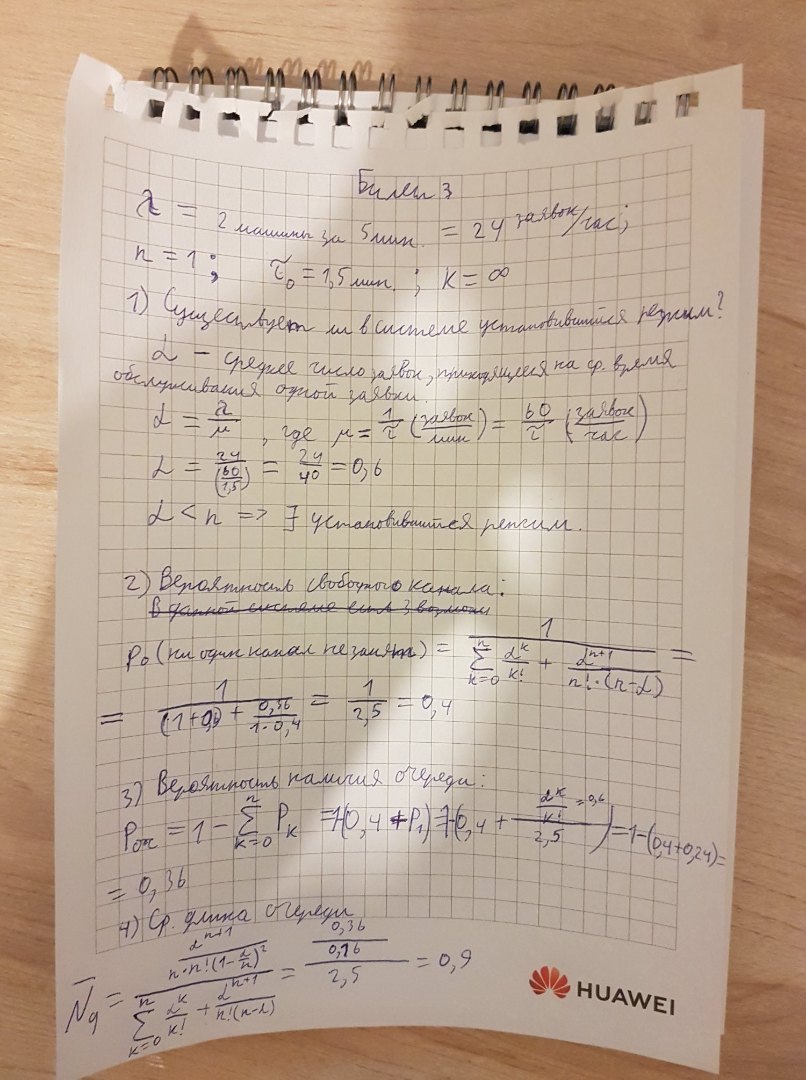 Билет 3
λ = 2 машины за 5 мин. = 24 заявок/час;
n = 1; τ₀ = 1,5 мин.; K = ∞
1) Существует ли в системе установившийся режим?
α – среднее число заявок, приходящееся на ср. время
обслуживания одной заявки.
α = λ/μ, где μ = 1/τ (заявок/мин) = 60/τ (заявок/час)
α = 24/(60/1,5) = 24/40 = 0,6
α < n => ∃ установившийся режим.
2) Вероятность свободного канала:
P₀ (ни один канал не занят) = 1/(∑ₖ₌₀ⁿ αᵏ/k! + αⁿ⁺¹/(n!·(n-α))) =
= 1/((1+0,6) + 0,36/(1·0,4)) = 1/2,5 = 0,4
3) Вероятность наличия очереди:
Pоч = 1 - ∑ₖ₌₀ⁿ Pₖ = 1-(0,4 + P₁) = 1-(0,4 + (αᵏ/k! = 0,6)/2,5) = 1-(0,4+0,24) =
= 0,36
4) Ср. длина очереди
N̄q = (αⁿ⁺¹/(n·n!(1-α/n)²))/(∑ₖ₌₀ⁿ αᵏ/k! + αⁿ⁺¹/(n!(n-α))) = (0,36/0,16)/2,5 = 0,9
HUAWEI